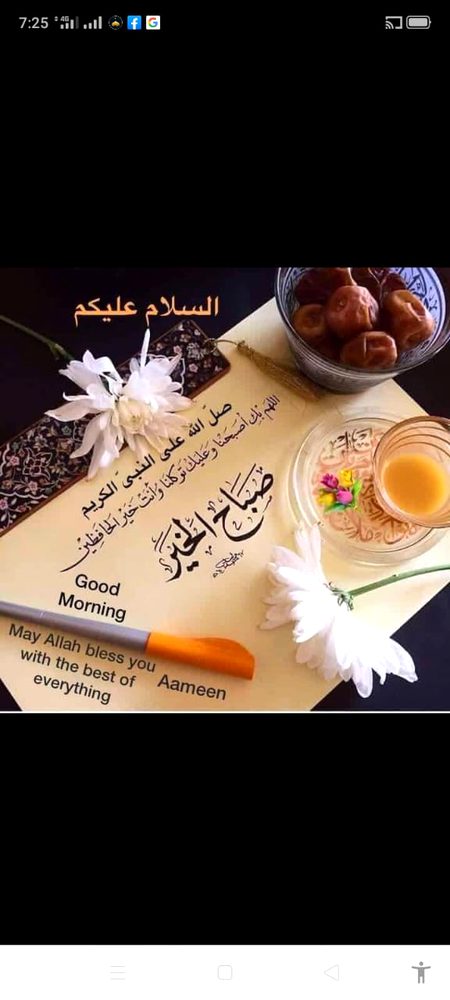 7:25
السلام عليكم
صل الله على النبي الكريم
اللهم بك أصبحنا وعليك توكلنا وأنت خير الحافظين
صباح الخير
Good
Morning
May Allah bless you
with the best of
everything
Aameen